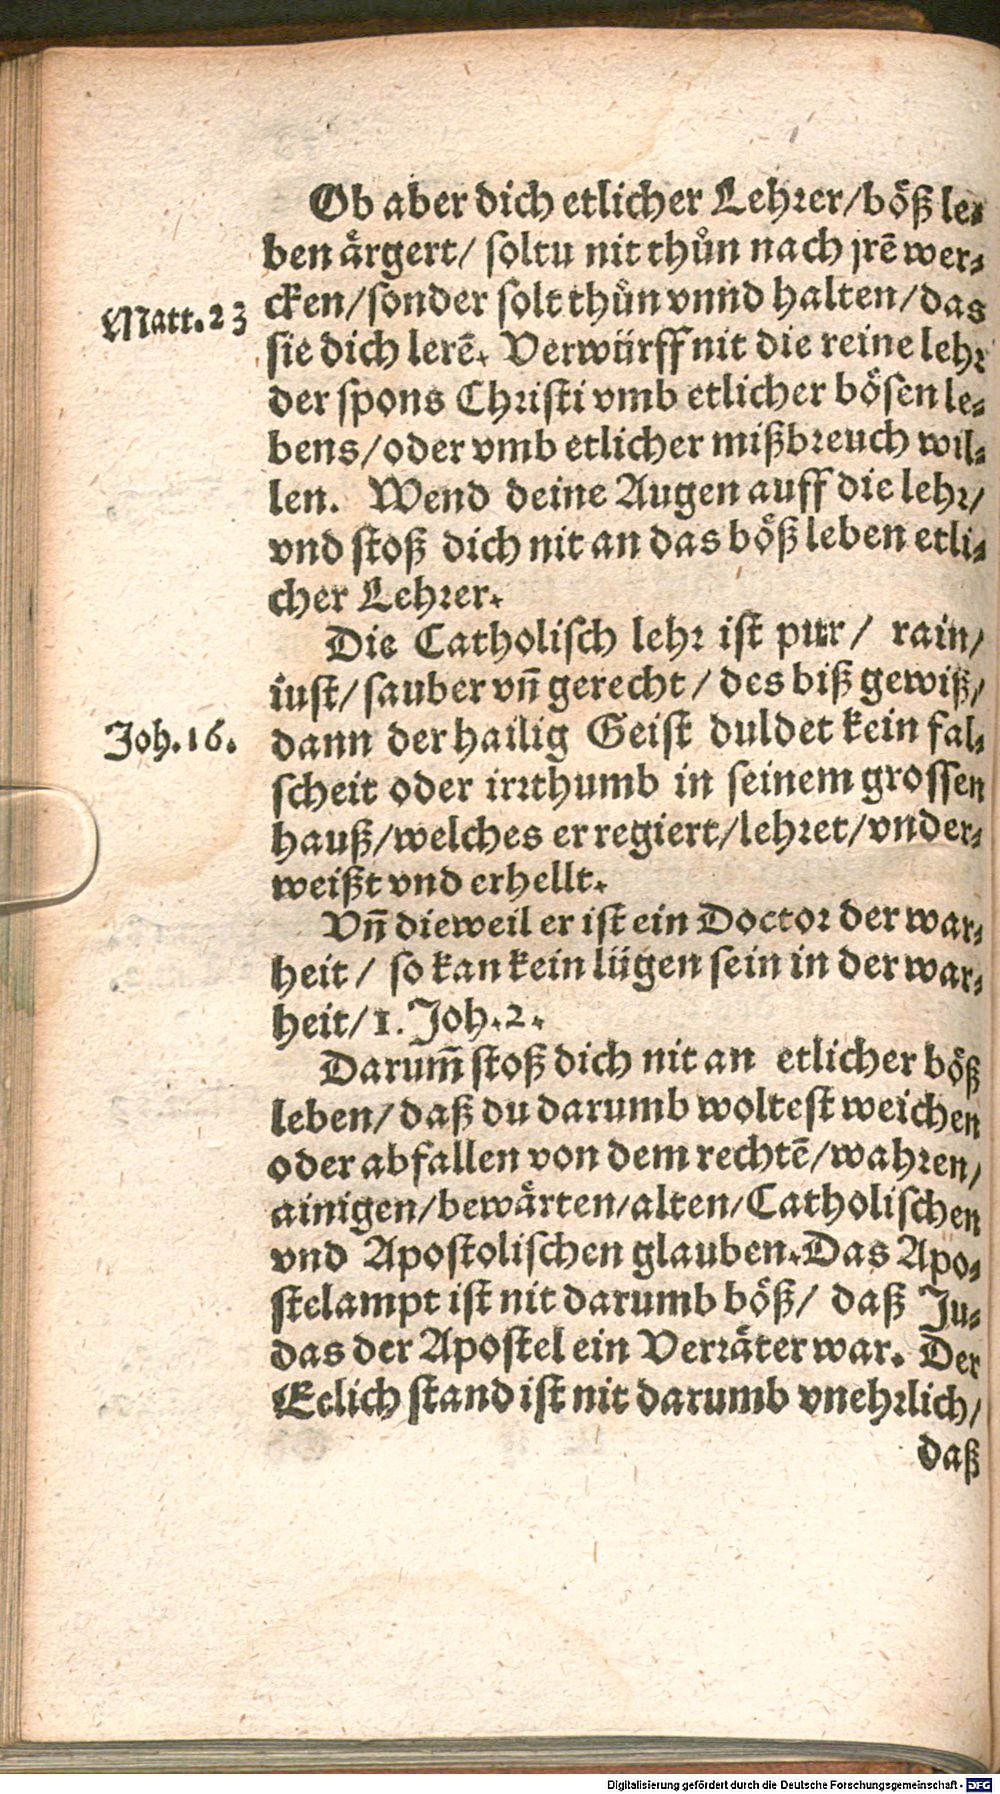 Ob aber dich etlicher Lehrer/böß le-
ben ärgert/ soltu nit thůn nach jrē wer-
Matt.23
cken/sonder solt thůn vnnd halten/das
sie dich lerē. Verwürff nit die reine lehr
der spons Christi vmb etlicher bösen le-
bens/oder vmb etlicher mißbreuch wil-
len. Wend deine Augen auff die lehr/
vnd stoß dich nit an das böß leben etli-
cher Lehrer.
Die Catholisch lehr ist pur/ rain/
iust/sauber vn̄ gerecht/des biß gewiß/
Joh.16.
dann der hailig Geist duldet kein fal-
scheit oder irrthumb in seinem grossen
hauß/welches er regiert/lehret/vnder-
weißt vnd erhellt.
Vn̄ dieweil er ist ein Doctor der war-
heit/ so kan kein lügen sein in der war-
heit/1. Joh.2.
Darum̄ stoß dich nit an etlicher böß
leben/daß du darumb woltest weichen
oder abfallen von dem rechtē/wahren/
ainigen/bewärten/alten/Catholischen
vnd Apostolischen glauben.Das Apo-
stelampt ist nit darumb böß/ daß Ju-
das der Apostel ein Verräter war. Der
Eelich stand ist nit darumb vnehrlich/
daß
Digitalisierung gefördert durch die Deutsche Forschungsgemeinschaft - DFG